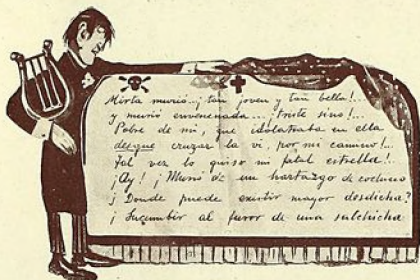 Mirta murió..¡tan joven y tan bella!..
Y murió envenenada... ¡triste sino!..
Pobre de mi, que idolatraba en ella
desque cruzar la vi, por mi camino!..
Tal vez lo quiso mi fatal estrella!..
¡Ay! ¡Murió de un hartazgo de cochino
¿Donde puede existir mayor desdicha?
¡Sucumbir al furor de una salchicha